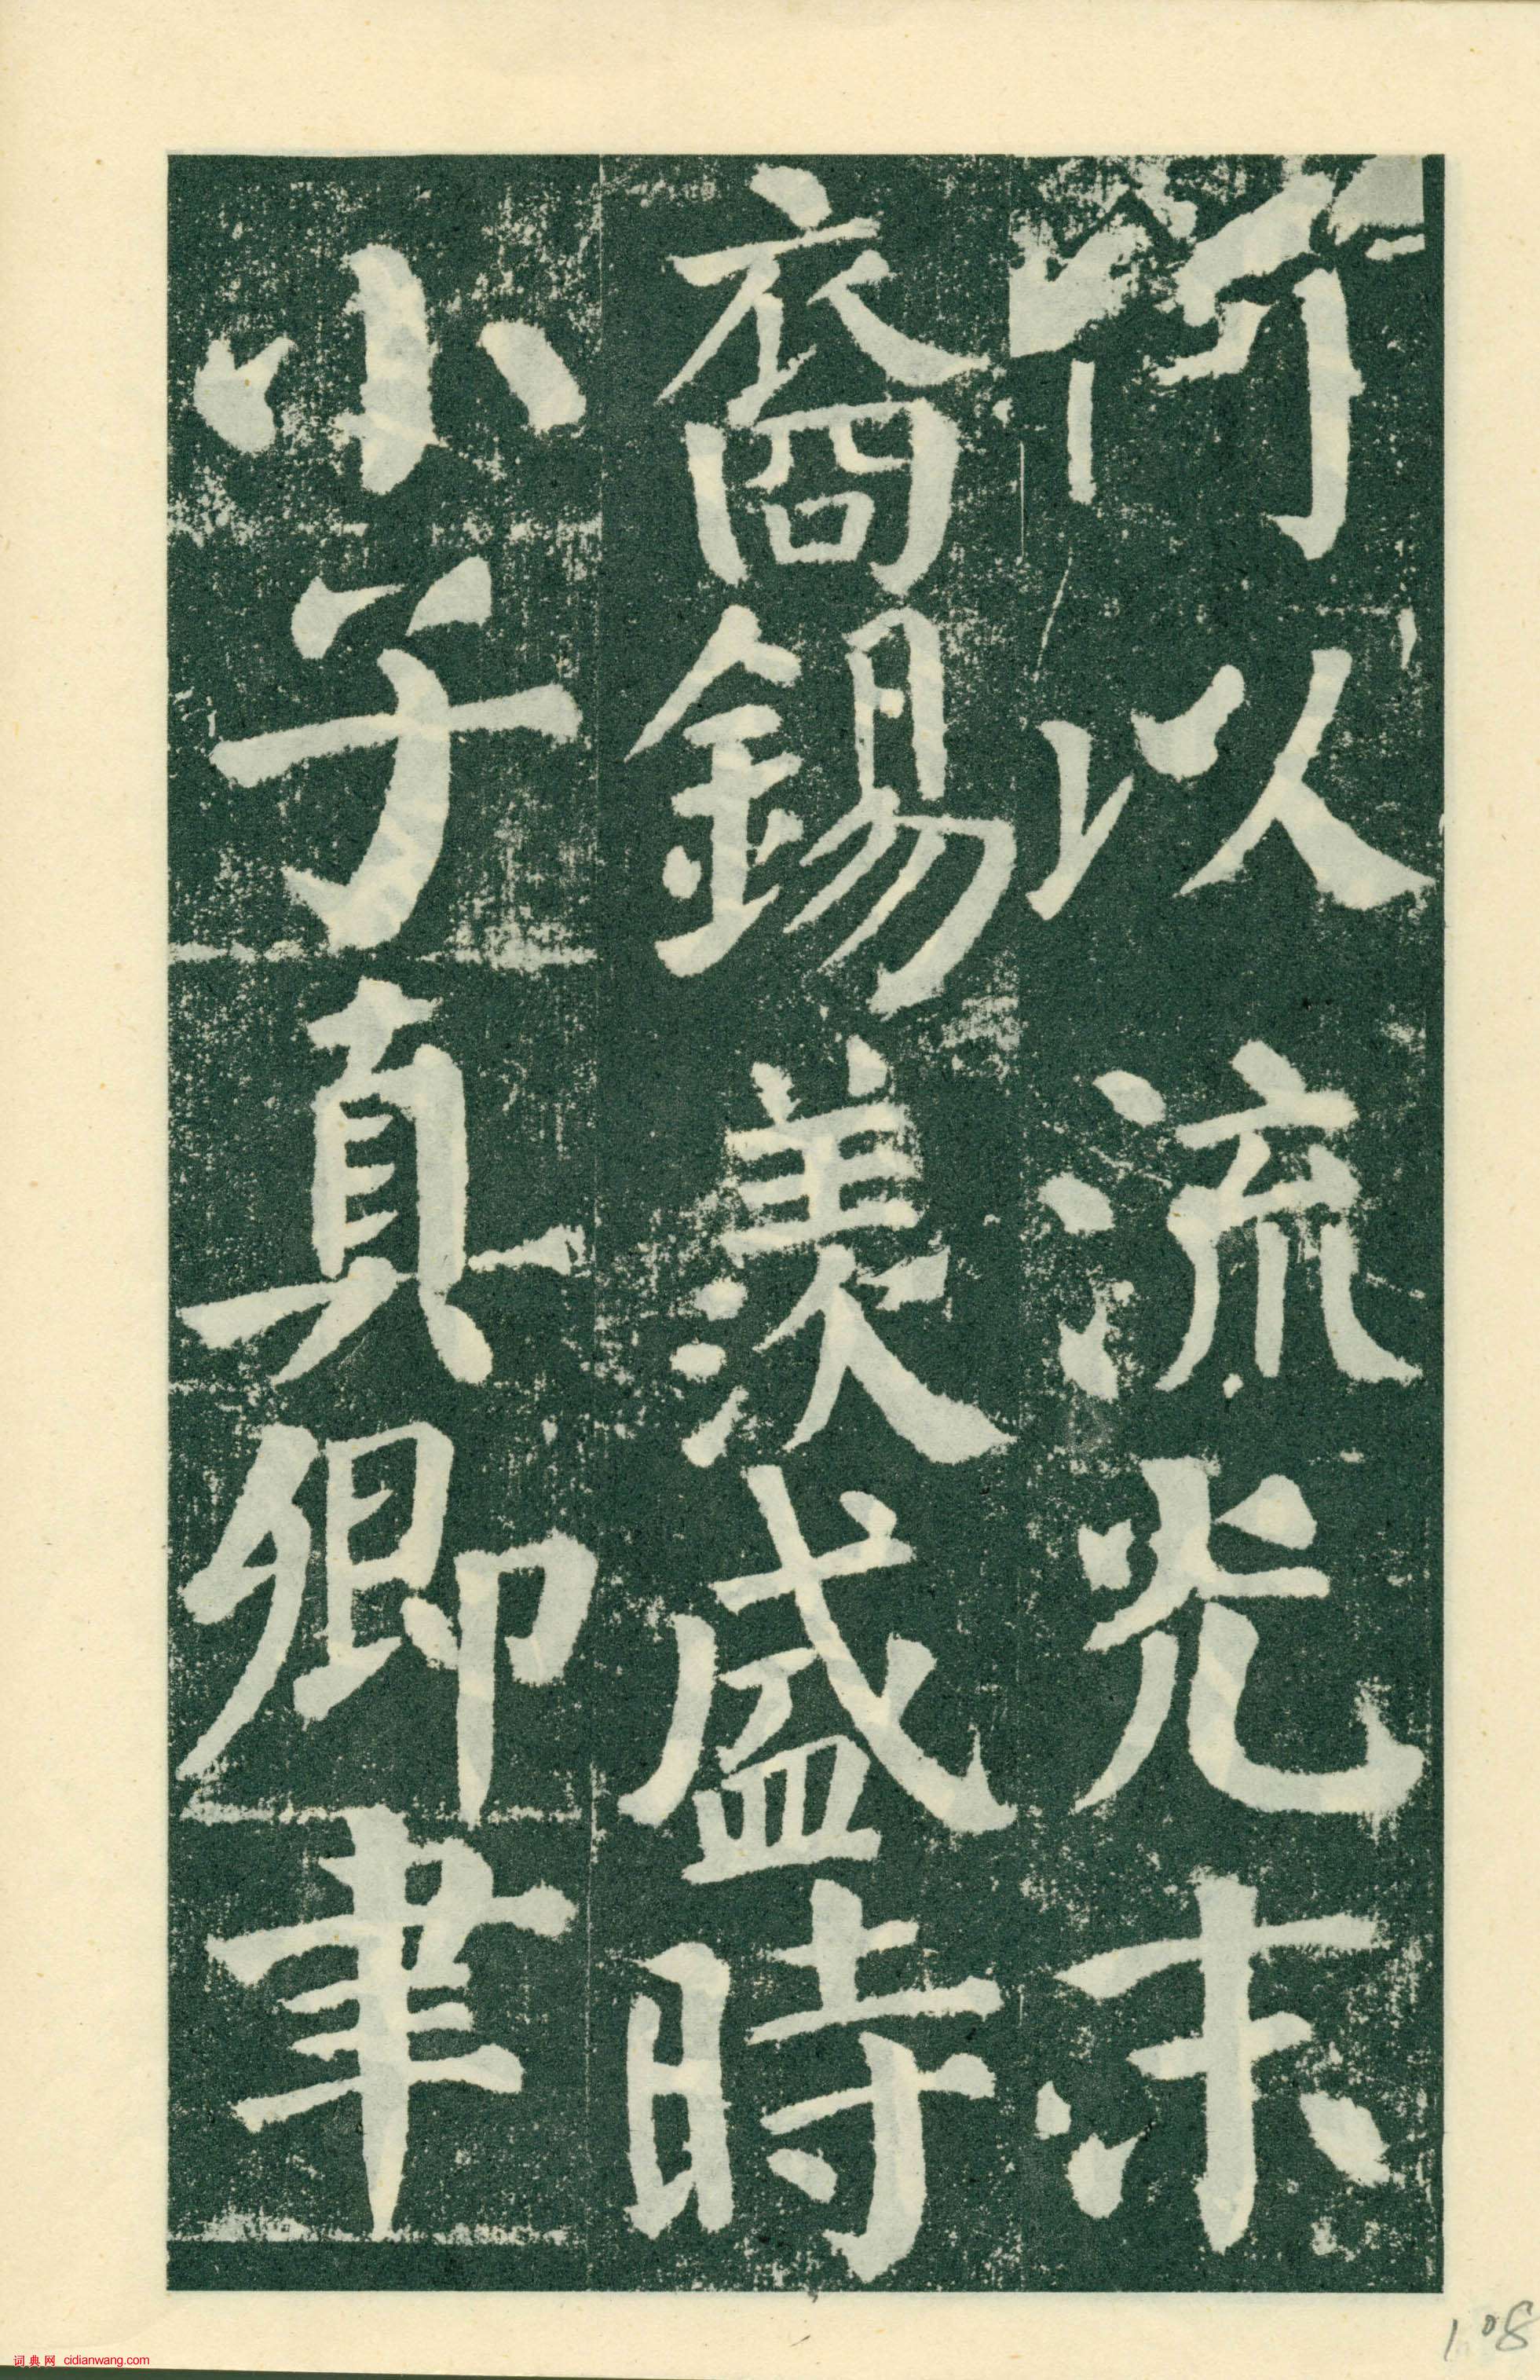 何以流光末
裔錫羨盛時
小子真卿聿
108
词典网 cidianwang.com